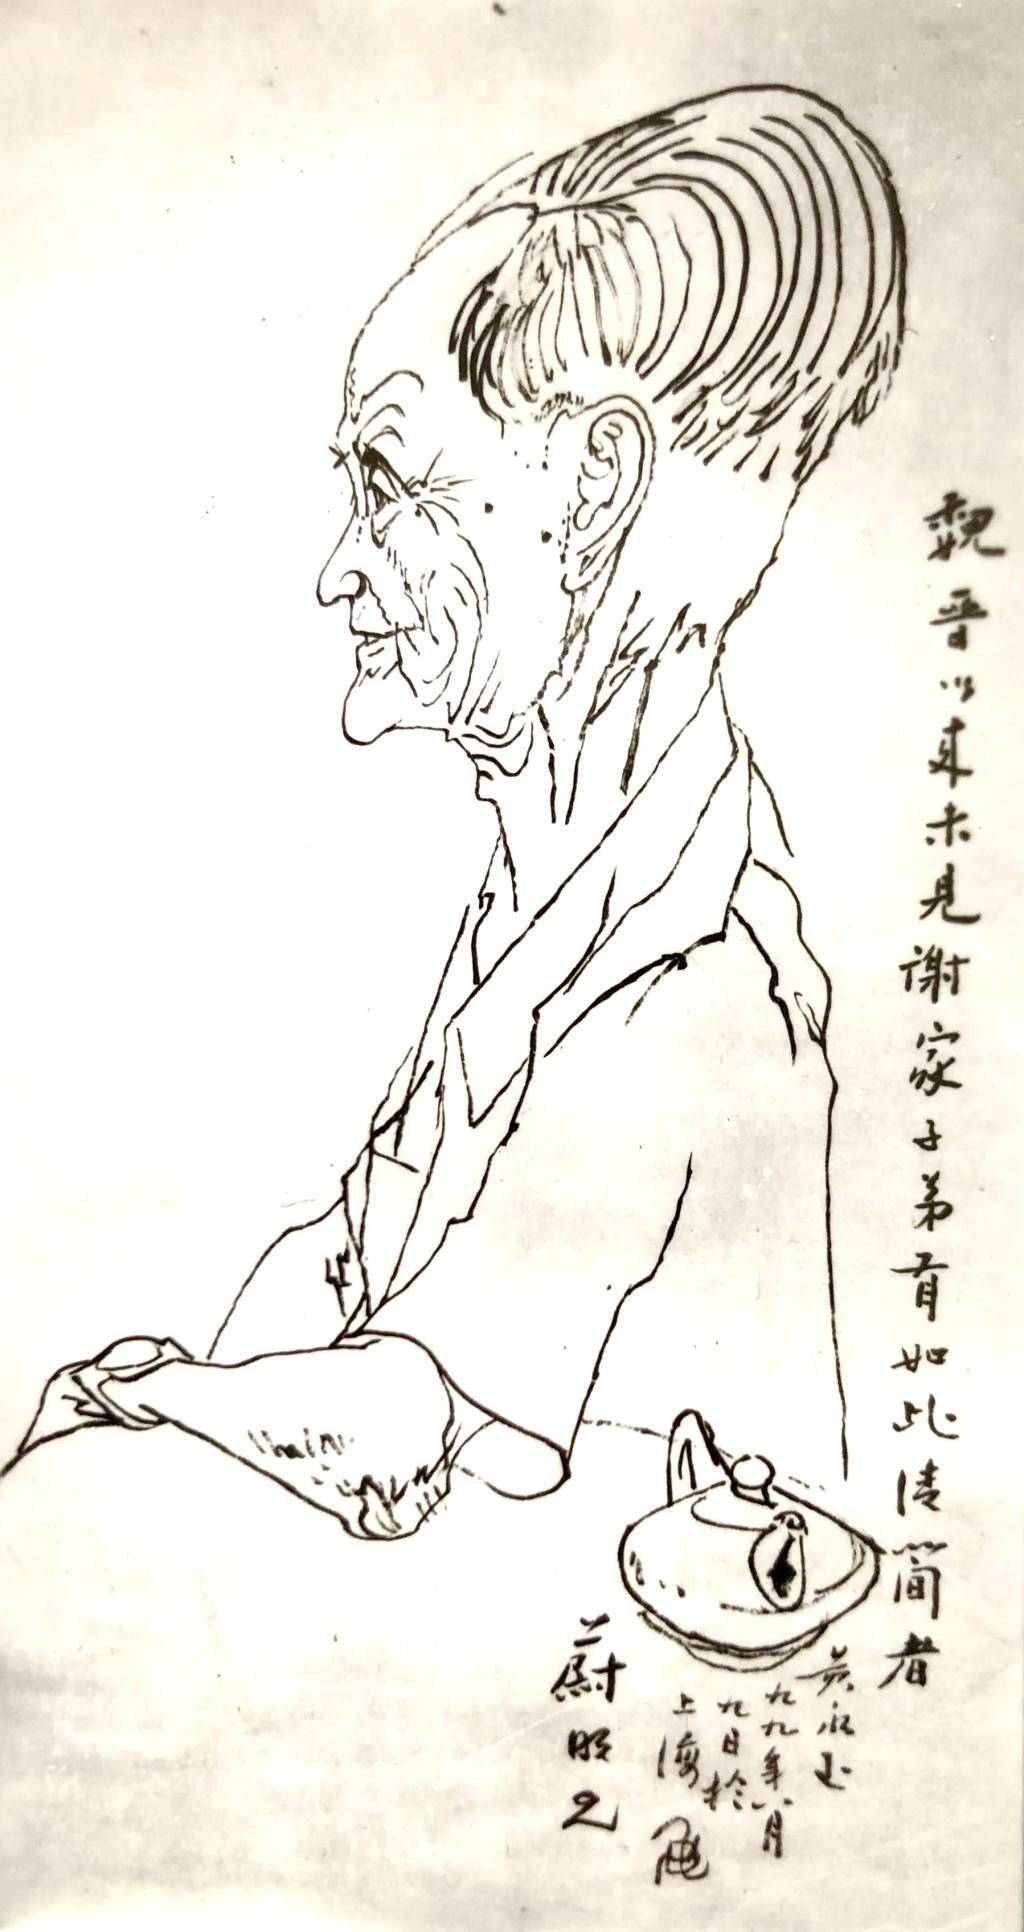 魏晋以来未見谢家子弟有如此清简者
黄永玉
九九年八月
九日於
上海
蔚明兄